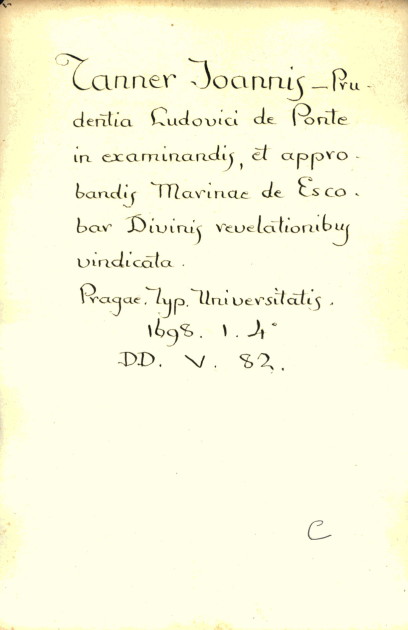 Tanner Joannis — Pru-
dentia Ludovici de Ponte
in examinandis, et appro-
bandis Marinae de Esco-
bar Divinis revelationibus
vindicata.
Pragae. Typ. Universitatis.
1698. 1. 4°
DD. V. 82.
C